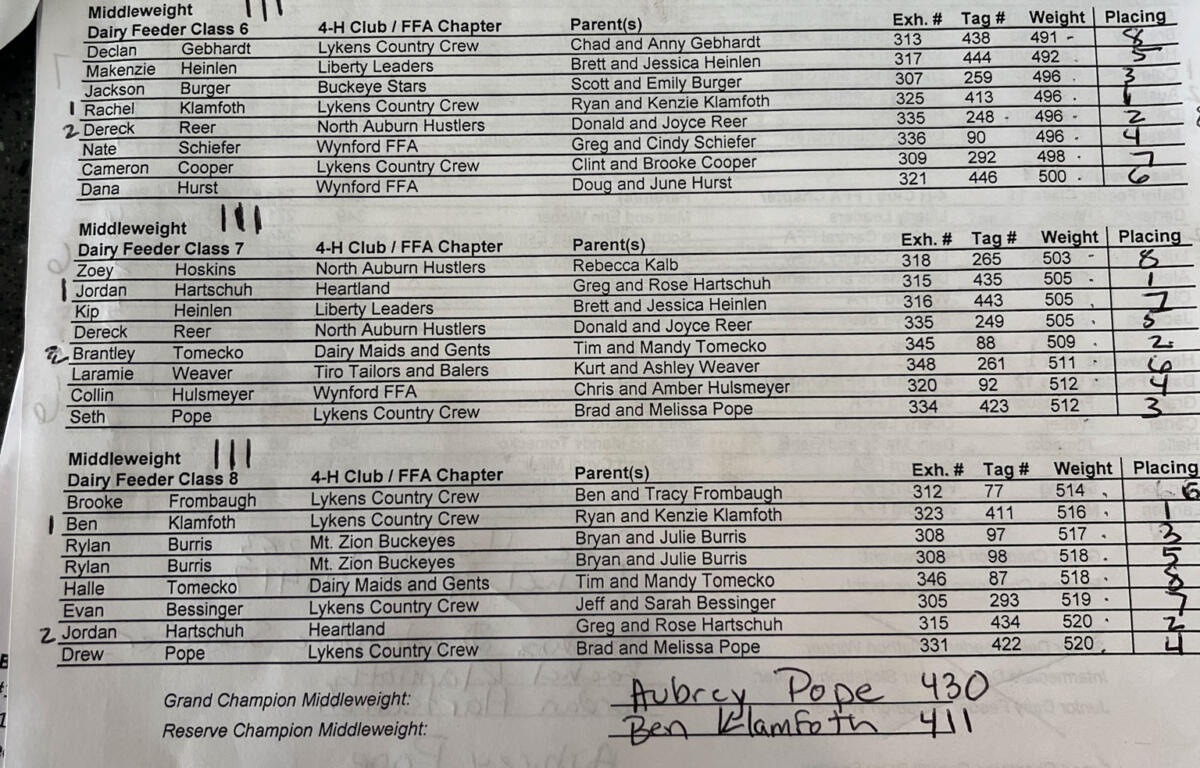 Middleweight III
Dairy Feeder Class 6 4-H Club / FFA Chapter Parent(s) Exh. # Tag # Weight Placing
Declan Gebhardt Lykens Country Crew Chad and Anny Gebhardt 313 438 491 - 8
Makenzie Heinlen Liberty Leaders Brett and Jessica Heinlen 317 444 492 . 5
Jackson Burger Buckeye Stars Scott and Emily Burger 307 259 496 . 3
1 Rachel Klamfoth Lykens Country Crew Ryan and Kenzie Klamfoth 325 413 496 . 1
2 Dereck Reer North Auburn Hustlers Donald and Joyce Reer 335 248 - 496 - 2
Nate Schiefer Wynford FFA Greg and Cindy Schiefer 336 90 496 . 4
Cameron Cooper Lykens Country Crew Clint and Brooke Cooper 309 292 498 . 7
Dana Hurst Wynford FFA Doug and June Hurst 321 446 500 . 6
Middleweight III
Dairy Feeder Class 7 4-H Club / FFA Chapter Parent(s) Exh. # Tag # Weight Placing
Zoey Hoskins North Auburn Hustlers Rebecca Kalb 318 265 503 - 8
1 Jordan Hartschuh Heartland Greg and Rose Hartschuh 315 435 505 . 1
Kip Heinlen Liberty Leaders Brett and Jessica Heinlen 316 443 505 . 7
Dereck Reer North Auburn Hustlers Donald and Joyce Reer 335 249 505 . 5
2 Brantley Tomecko Dairy Maids and Gents Tim and Mandy Tomecko 345 88 509 . 2.
Laramie Weaver Tiro Tailors and Balers Kurt and Ashley Weaver 348 261 511 . 6
Collin Hulsmeyer Wynford FFA Chris and Amber Hulsmeyer 320 92 512 . 4
Seth Pope Lykens Country Crew Brad and Melissa Pope 334 423 512 . 3
Middleweight III
Dairy Feeder Class 8 4-H Club / FFA Chapter Parent(s) Exh. # Tag # Weight Placing
Brooke Frombaugh Lykens Country Crew Ben and Tracy Frombaugh 312 77 514 . 6
1 Ben Klamfoth Lykens Country Crew Ryan and Kenzie Klamfoth 323 411 516 . 1
Rylan Burris Mt. Zion Buckeyes Bryan and Julie Burris 308 97 517 . 3
Rylan Burris Mt. Zion Buckeyes Bryan and Julie Burris 308 98 518 . 5
Halle Tomecko Dairy Maids and Gents Tim and Mandy Tomecko 346 87 518 . 8
Evan Bessinger Lykens Country Crew Jeff and Sarah Bessinger 305 293 519 . 7
2 Jordan Hartschuh Heartland Greg and Rose Hartschuh 315 434 520 . 2
Drew Pope Lykens Country Crew Brad and Melissa Pope 331 422 520 . 4
Grand Champion Middleweight: Aubrey Pope 430
Reserve Champion Middleweight: Ben Klamfoth 411